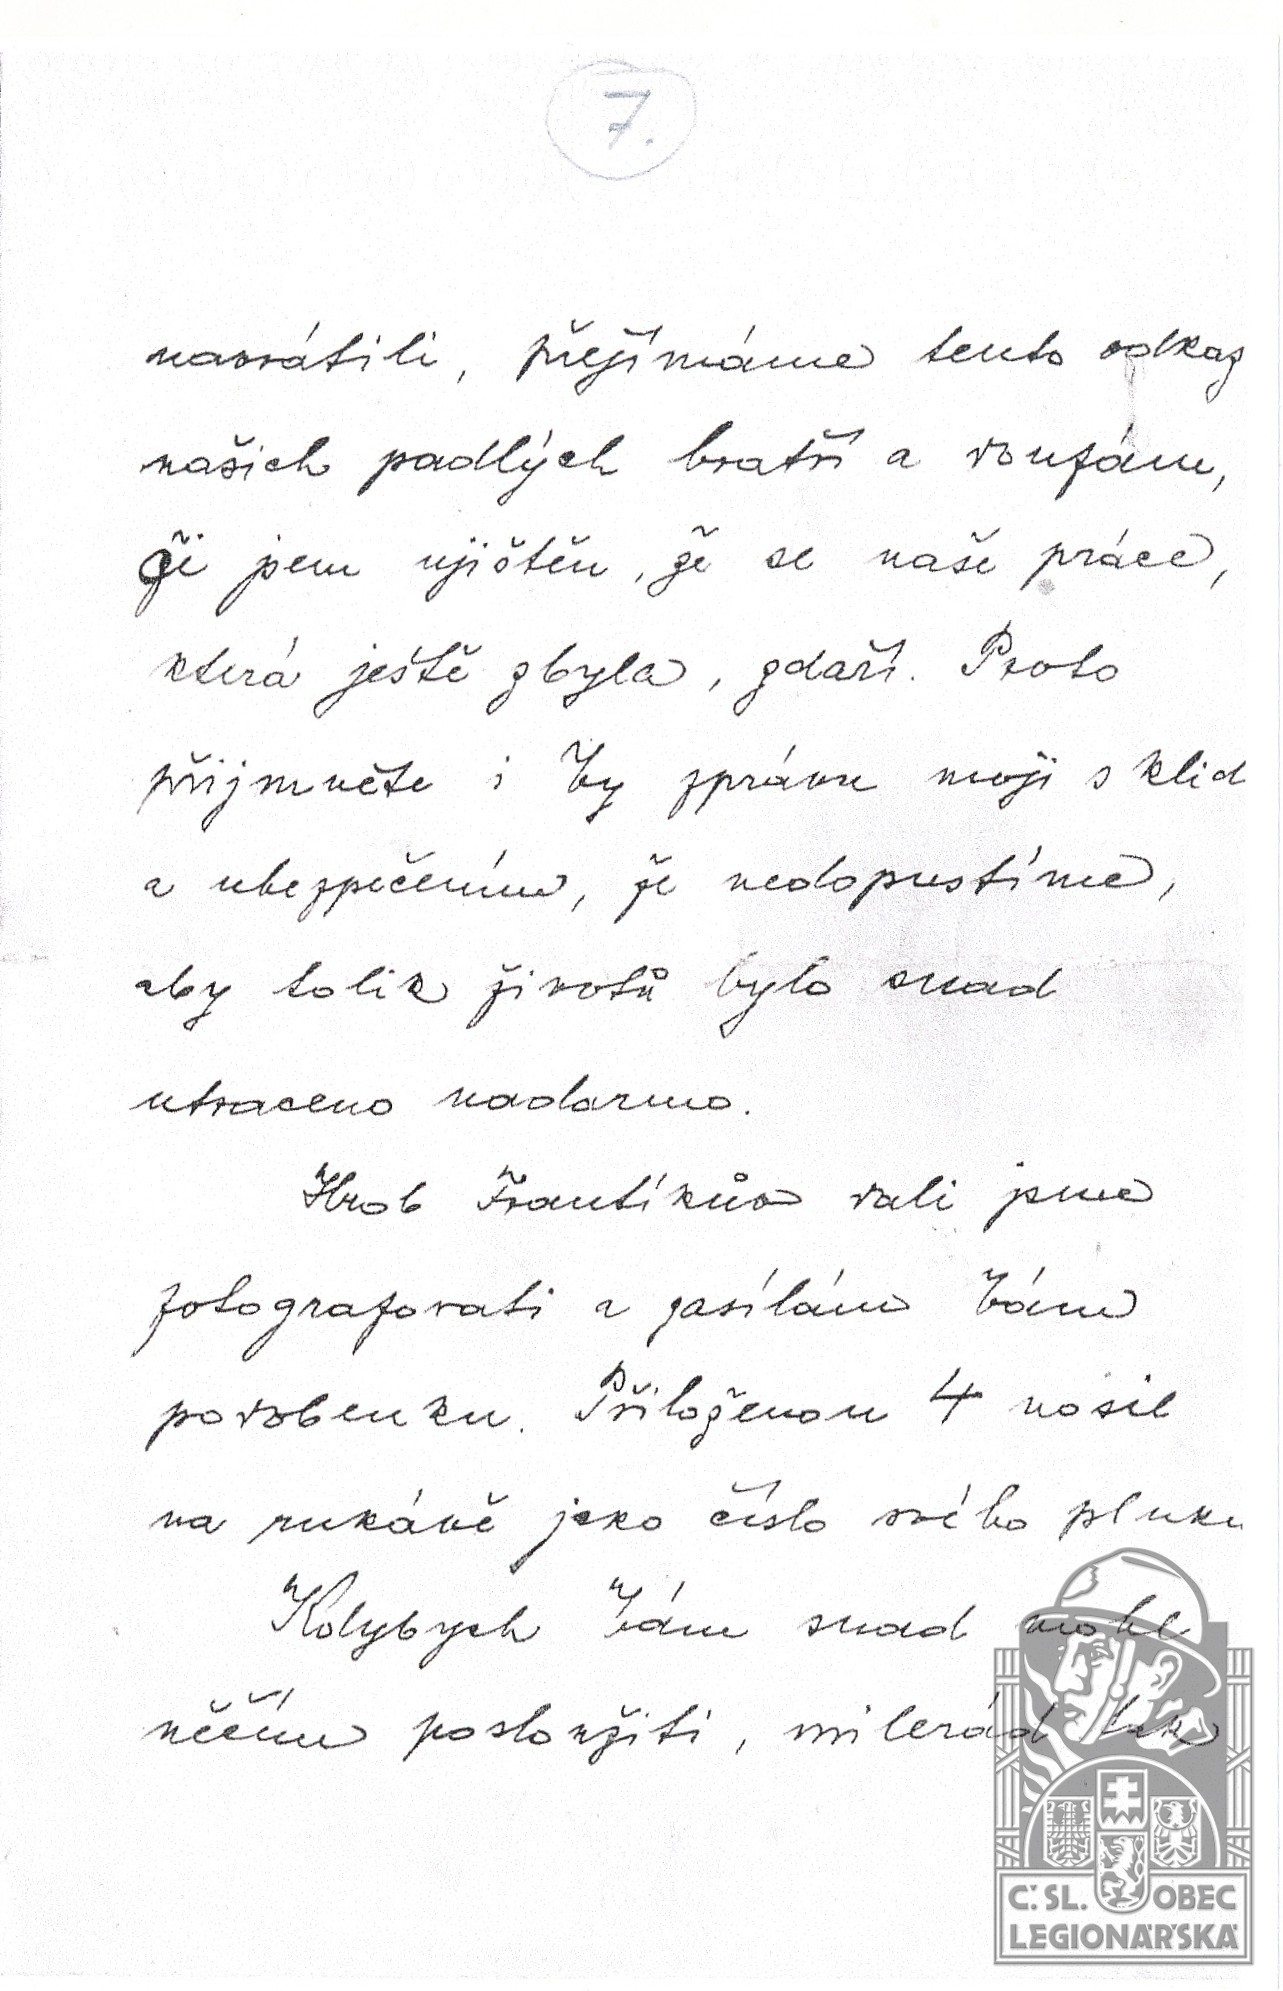 7.
navrátili, přejímáme tento odkaz
našich padlých bratří a doufám,
či jsem ujištěn, že se naše práce,
která ještě zbyla, zdaří. Proto
přijměte i Vy zprávu moji s klid
a ubezpečením, že nedopustíme,
aby tolik životů bylo snad
utraceno nadarmo.
Hrob Frantíkův dali jsme
fotografovati a zasílám Vám
podobenku. Přiloženou 4 nosil
na rukávě jako číslo svého pluku
Kdybych Vám snad mohl
něčím posloužiti, milerád tak
Č. SL. OBEC
LEGIONÁŘSKÁ